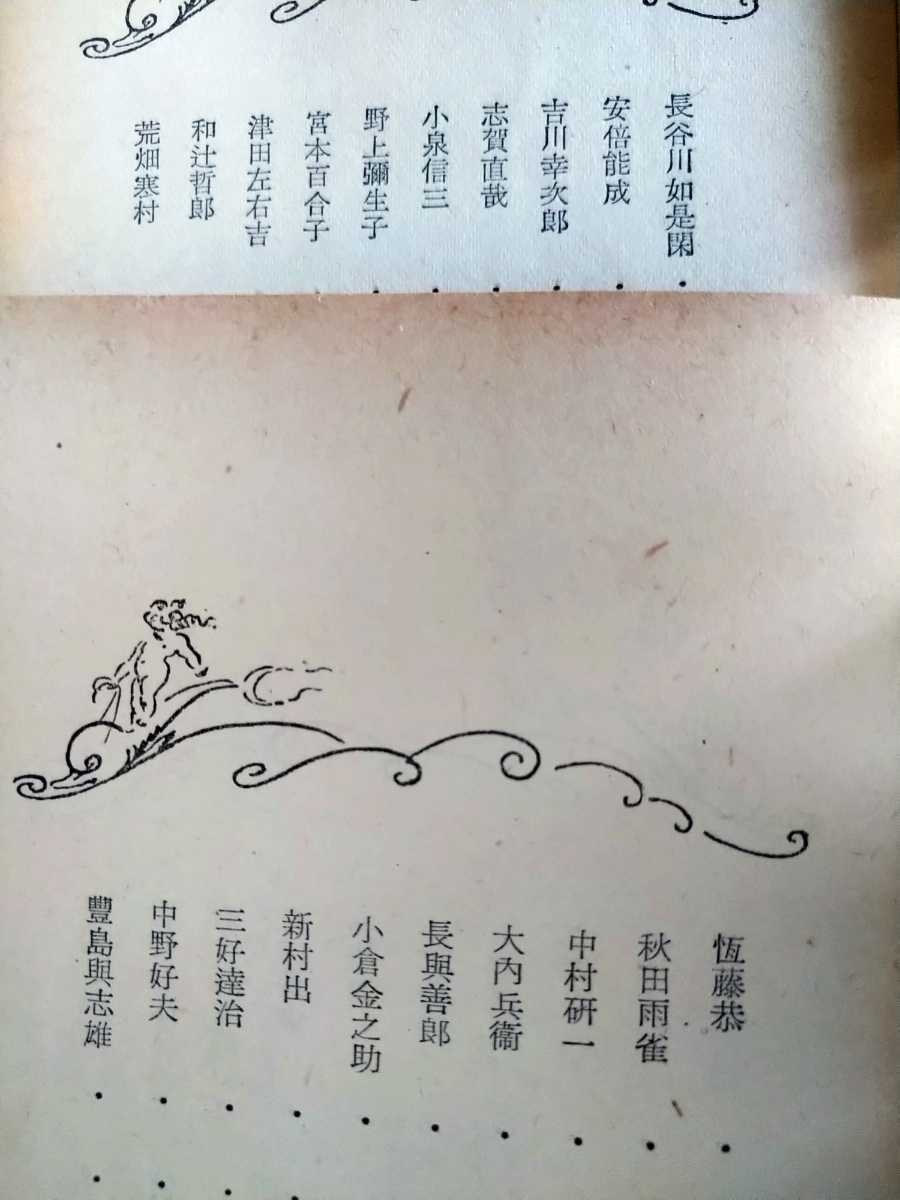 長谷川如是閑
安倍能成
吉川幸次郎
志賀直哉
小泉信三
野上彌生子
宮本百合子
津田左右吉
和辻哲郎
荒畑寒村
恆藤恭
秋田雨雀
中村研一
大內兵衞
長與善郎
小倉金之助
新村出
三好達治
中野好夫
豐島與志雄